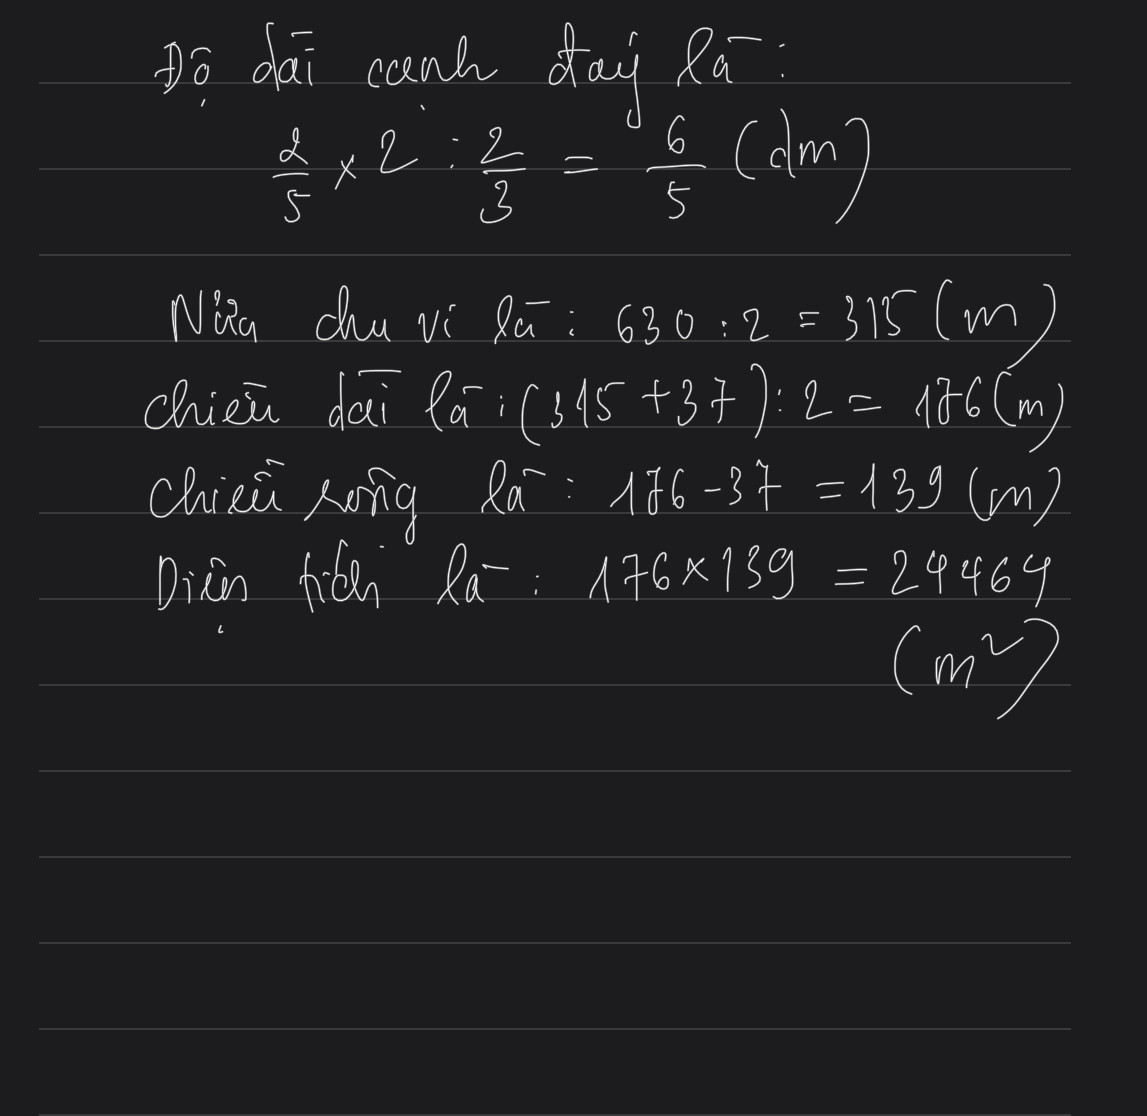 Độ dài cạnh đáy là:
2/5 x 2 : 2/3 = 6/5 (dm)
Nửa chu vi là: 630 : 2 = 315 (m)
chiều dài là: (315 + 37) : 2 = 176 (m)
chiều rộng là: 176 - 37 = 139 (m)
Diện tích là: 176 x 139 = 24464
(m²)